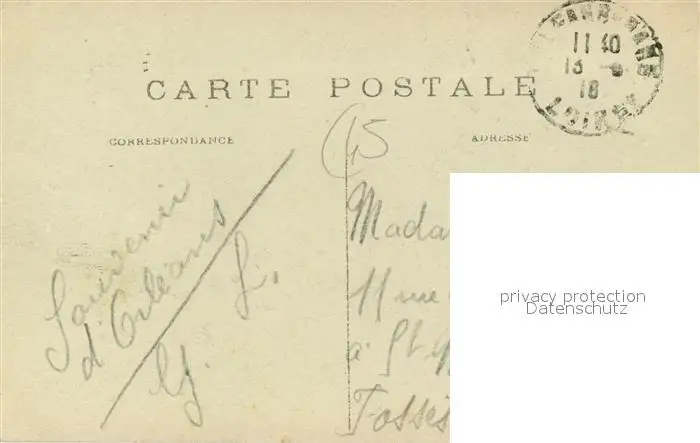 CARTE POSTALE
CORRESPONDANCE
ADRESSE
11 40
13
18
LOIRET
(45
Souvenir
d'Orléans
L.
Mada
11 rue
à St
Fossés
privacy protection
Datenschutz